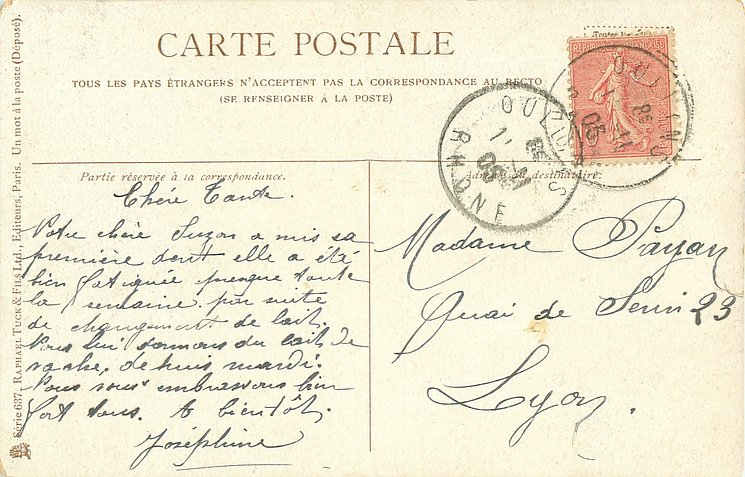 CARTE POSTALE
TOUS LES PAYS ÉTRANGERS N'ACCEPTENT PAS LA CORRESPONDANCE AU RECTO
(SE RENSEIGNER À LA POSTE)
Partie réservée à la correspondance.
Chère Tante
Votre chère Suzon a mis sa
première dent elle a été
bien fatiguée presque toute
la semaine par suite
de changement de lait.
Nous lui donnons du lait de
vache, depuis mardi.
Nous vous embrassons bien
fort tous. A bientôt.
Joséphine
Adresse du destinataire.
Madame Payan
Quai de Serin 23
Lyon
RÉPUBLIQUE FRANÇAISE
10
OULLINS
05
RHONE
OULLINS
05
Série 637. RAPHAEL TUCK & FILS Ltd., Editeurs, Paris. Un mot à la poste (Déposé).